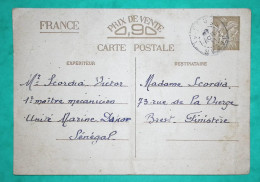 FRANCE
PRIX DE VENTE
0,90
CARTE POSTALE
EXPÉDITEUR
DESTINATAIRE
Mr Scordia Victor
1er maître mécanicien
Unité Marine Dakar
Sénégal
Madame Scordia
73 rue de la Vierge
Brest Finistère